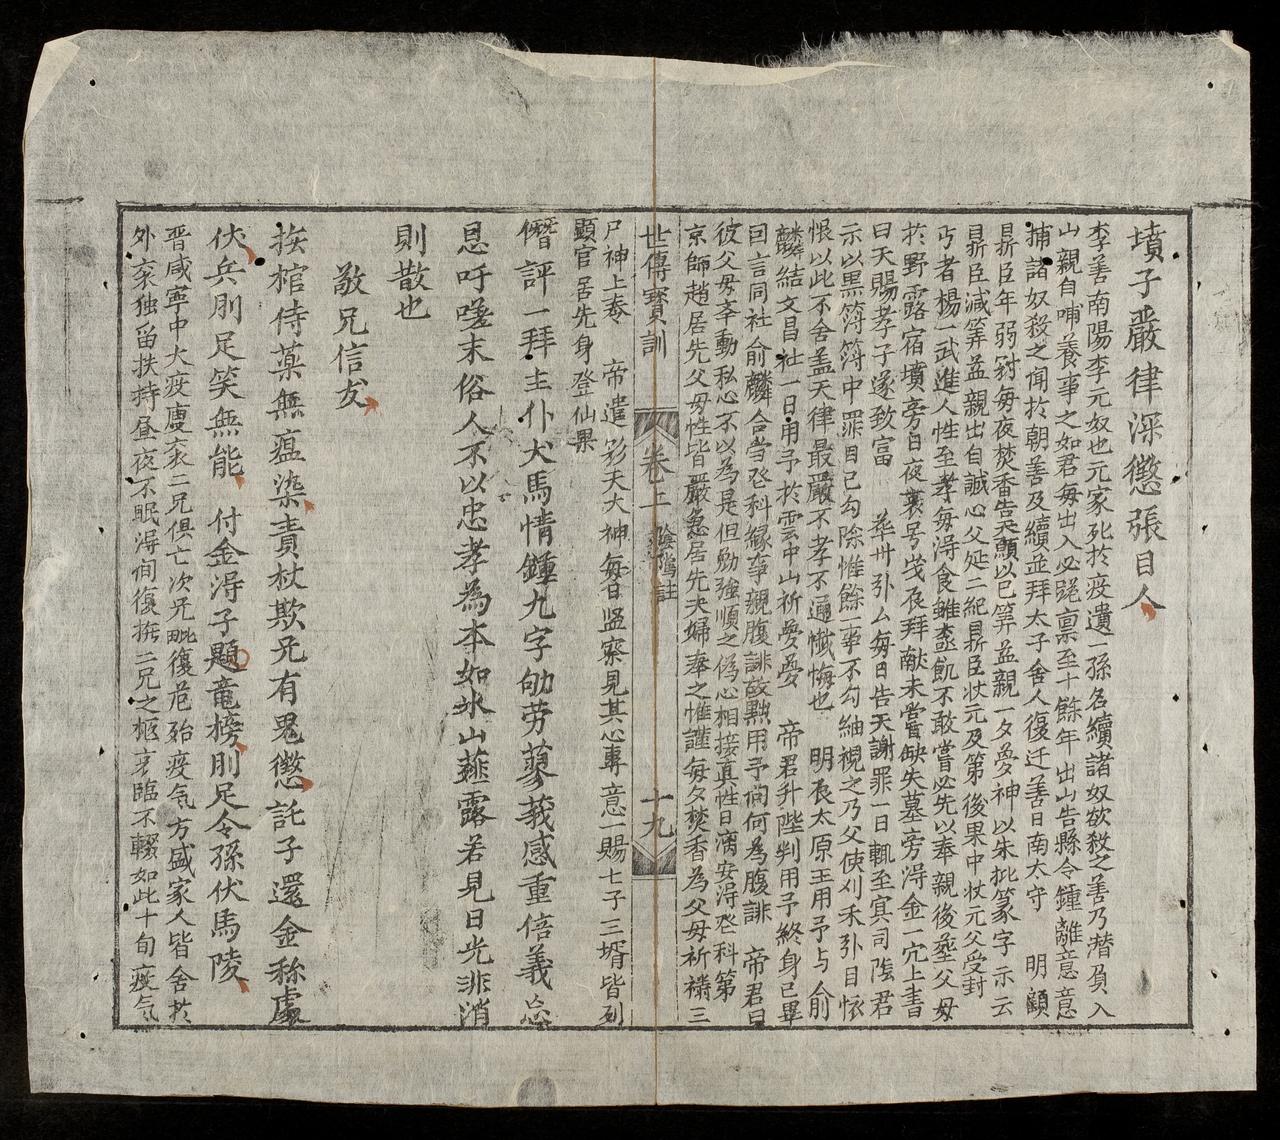 墳子嚴律深懲張目人
李善南陽李元奴也元家死於疫遺一孫名續諸奴欲殺之善乃潛負入
山親自哺養事之如君每出入必跪稟至十餘年出山告縣令鍾離意意
捕諸奴殺之聞於朝善及續並拜太子舍人復迁善日南太守　明顧
鼎臣年弱冠每夜焚香告天願以己筭益親一夕夢神以朱批篆字示云
鼎臣減筭益親出自誠心父延二紀鼎臣状元及第後果中状元父受封
丐者楊一武進人性至孝每淂食雖枵飢不敢嘗必先以奉親後塟父母
於野露宿墳旁日夜哀号歲辰拜献未嘗缺失墓旁淂金一穴上書
曰天賜孝子遂致富　華卅引厶每日告天謝罪一日輒至冥司陰君
示以黑簿簿中罪目已勾除惟餘一事不勾細視之乃父使刈禾引目怀
恨以此不舍盖天律最嚴不孝不通懺悔也　明辰太原王用予与俞
麟結文昌社一日用予於雲中山祈夢夢　帝君升陛判用予終身已畢
回言同社俞麟合當登科緣事親腹誹故黜用予問何為腹誹　帝君曰
彼父母卒動私心不以為是但勉強順之偽心相接真性日漓安淂登科第
京師趙居先父母性皆嚴急居先夫婦奉之惟謹每夕焚香為父母祈禱三
世傳寳訓　卷上　陰隲註　十九
尸神上奏　帝遣彩天大神每日監察見其心專意一賜七子三壻皆列
顯官居先身登仙果
僭評一拜主仆犬馬情鍾九字劬劳蓼莪感重倍義忘
恩吁嗟末俗人不以忠孝為本如氷山薤露若見日光非消
則散也
敬兄信友
撫棺侍薬無瘟染責杖欺兄有鬼懲託子還金称處
伏兵刖足笑無能　付金淂子題竜榜刖足令孫伏馬陵
晋咸寧中大疫庾衮二兄俱亡次兄毗復危殆疫気方盛家人皆舍於
外衮独留扶持昼夜不眠淂间復撫二兄之柩哀臨不輟如此十旬疫气